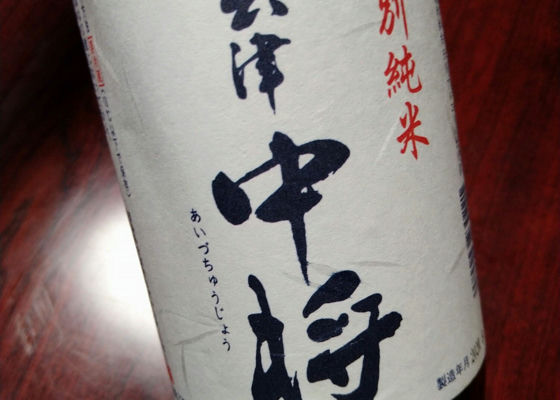 別純米
会津
中将
あいづちゅうじょう
製造年月